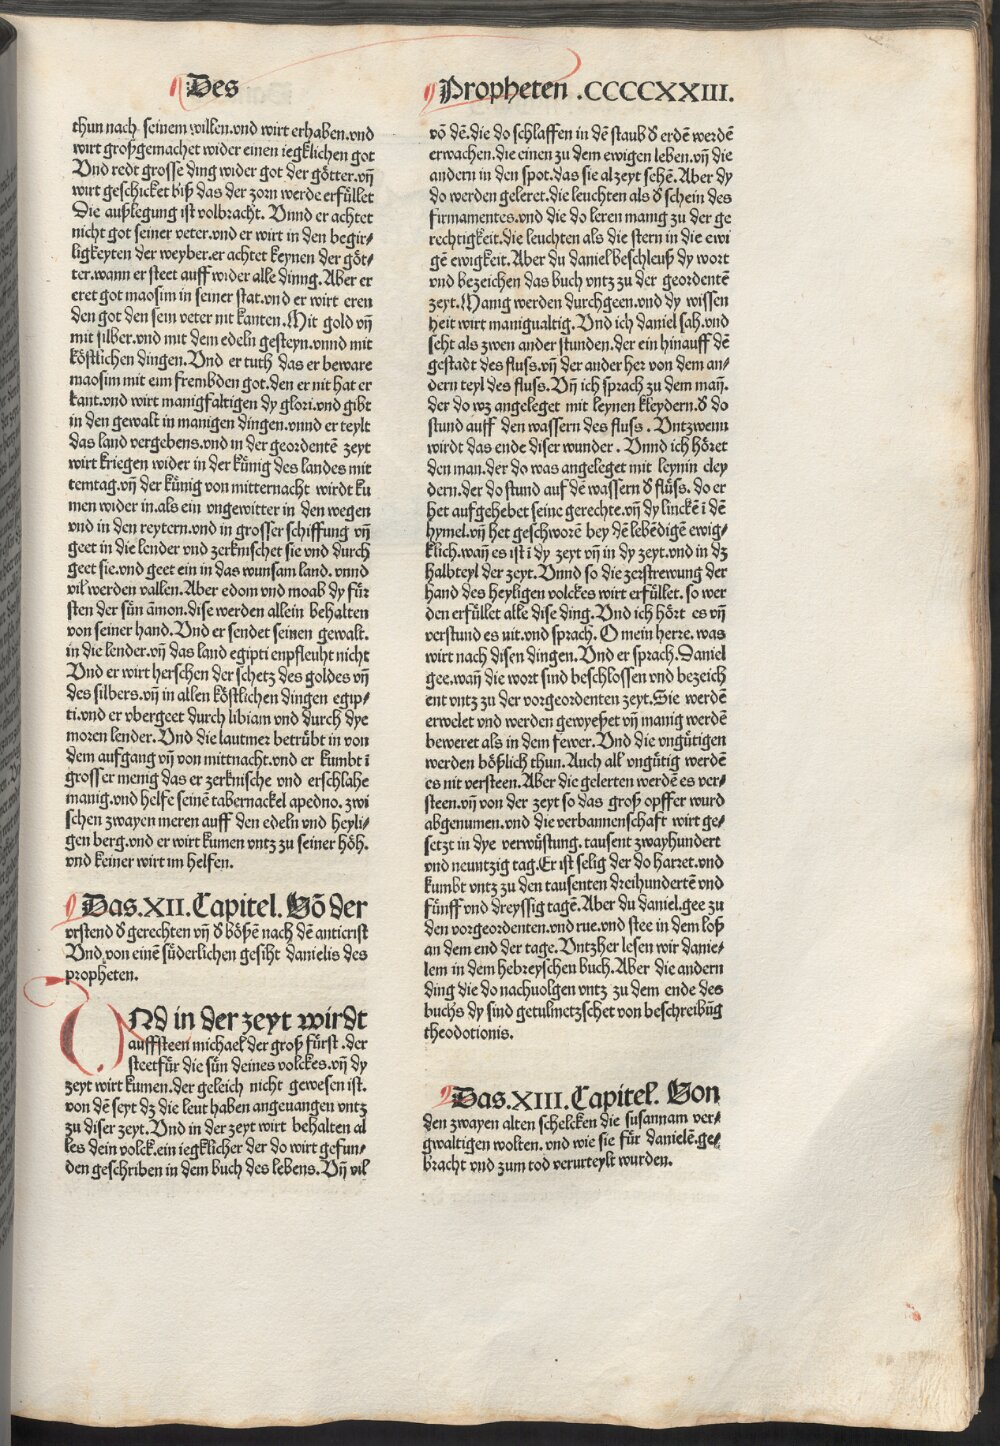 Des
Propheten .CCCCXXIII.
thun nach seinem willen.vnd wirt erhaben.vnd
wirt großgemachet wider einen iegklichen got
Vnd redt grosse ding wider got der götter.vñ
wirt geschicket biß das der zorn werde erfüllet
Die außlegung ist volbracht. Vnnd er achtet
nicht got seiner veter.vnd er wirt in den begir-
ligkeyten der weyber.er achtet keynen der göt-
ter.wann er steet auff wider alle dinng.Aber er
eret got maosim in seiner stat.vnd er wirt eren
den got den sein veter nit kanten.Mit gold vñ
mit silber.vnd mit dem edeln gesteyn.vnnd mit
köstlichen dingen.Vnd er tuth das er beware
maosim mit eim frembden got.den er nit hat er
kant.vnd wirt manigfaltigen dy glori.vnd gibt
in den gewalt in manigen dingen.vnnd er teylt
das land vergebens.vnd in der geordentē zeyt
wirt kriegen wider in der künig des landes mit
temtag.vñ der künig von mitternacht wirdt ku
men wider in.als ein vngewitter in den wegen
vnd in den reytern.vnd in grosser schiffung vñ
geet in die lender vnd zerknischet sie vnd durch
geet sie.vnd geet ein in das wunsam land. vnnd
vil werden vallen.Aber edom vnd moab dy für
sten der sün āmon.dise werden allein behalten
von seiner hand.Vnd er sendet seinen gewalt.
in die lender.vñ das land egipti enpfleuht nicht
Vnd er wirt herschen der schetz des goldes vñ
des silbers.vñ in allen köstlichen dingen egip-
ti.vnd er vbergeet durch libiam vnd durch dye
moren lender. Vnd die lautmer betrübt in von
dem aufgang vñ von mittnacht.vnd er kumbt ī
grosser menig das er zerknische vnd erschlahe
manig.vnd helfe seinē tabernackel apedno. zwi
schen zwayen meren auff den edeln vnd heyli-
gen berg.vnd er wirt kumen vntz zu seiner höh.
vnd keiner wirt im helfen.
Das.XII.Capitel. Võ der
vrstend ď gerechten vñ ď bößē nach dē anticrist
Vnd von einē süderlichen gesiht danielis des
propheten.
VNd in der zeyt wirdt
auffsteen michael der groß fürst .der
steet für die sün deines volckes.vñ dy
zeyt wirt kumen.der geleich nicht gewesen ist.
von dē seyt dz die leut haben angeuangen vntz
zu diser zeyt.Vnd in der zeyt wirt behalten al
les dein volck.ein iegklicher der do wirt gefun-
den geschriben in dem buch des lebens.Vñ vil
võ dē.die do schlaffen in dē staub ď erdē werdē
erwachen.die einen zu dem ewigen leben.vñ die
andern in den spot.das sie alzeyt sehē.Aber dy
do werden geleret.die leuchten als ď schein des
firmamentes.vnd die do leren manig zu der ge
rechtigkeit.die leuchten als die stern in die ewi
gē ewigkeit.Aber du daniel beschleuß dy wort
vnd bezeichen das buch vntz zu der geordentē
zeyt.Manig werden durchgeen.vnd dy wissen
heit wirt manigualtig.Vnd ich daniel sah.vnd
seht als zwen ander stunden.der ein hinauff dē
gestadt des fluss.vñ der ander her von dem an-
dern teyl des fluss.Vñ ich sprach zu dem mañ.
der do wz angeleget mit leynen kleydern.ď do
stund auff den wassern des fluss . Vntzwenn
wirdt das ende diser wunder . Vnnd ich höret
den man.der do was angeleget mit leynin cley
dern.der do stund auf dē wassern ď flüss. do er
het aufgehebet seine gerechte.vñ dy linckē ī dē
hymel.vñ het geschworē bey dē lebēdigē ewig-
klich.wañ es ist ī dy zeyt vñ in dy zeyt.vnd in dz
halbteyl der zeyt.Vnnd so die zerstrewung der
hand des heyligen volckes wirt erfüllet.so wer
den erfüllet alle dise ding.Vnd ich hört es vñ
verstund es nit.vnd sprach. O mein herre.was
wirt nach disen dingen.Vnd er sprach.Daniel
gee.wañ die wort sind beschlossen vnd bezeich
ent vntz zu der vorgeordenten zeyt.Sie werdē
erwelet vnd werden geweyßet vñ manig werdē
beweret als in dem fewer.Vnd die vngütigen
werden bößlich thun.Auch all vngütig werdē
es nit versteen.Aber die gelerten werdē es ver-
steen.vñ von der zeyt so das groß opffer wurd
abgenumen.vnd die verbannenschaft wirt ge-
setzt in dye verwüstung.tausent zwayhundert
vnd neuntzig tag.Er ist selig der do harret.vnd
kumbt vntz zu den tausenten dreihundertē vnd
fünff vnd dreyssig tagē.Aber du daniel.gee zu
den vorgeordenten.vnd rue.vnd stee in dem loß
an dem end der tage.Vntzher lesen wir danie-
lem in dem hebreyschen buch.Aber die andern
ding die do nachuolgen vntz zu dem ende des
buchs dy sind getulmetzschet von beschreibūg
theodotionis.
Das.XIII.Capitel. Von
den zwayen alten schelcken die susannam ver-
gwaltigen wolten.vnd wie sie für danielē.ge-
bracht vnd zum tod verurteylt wurden.